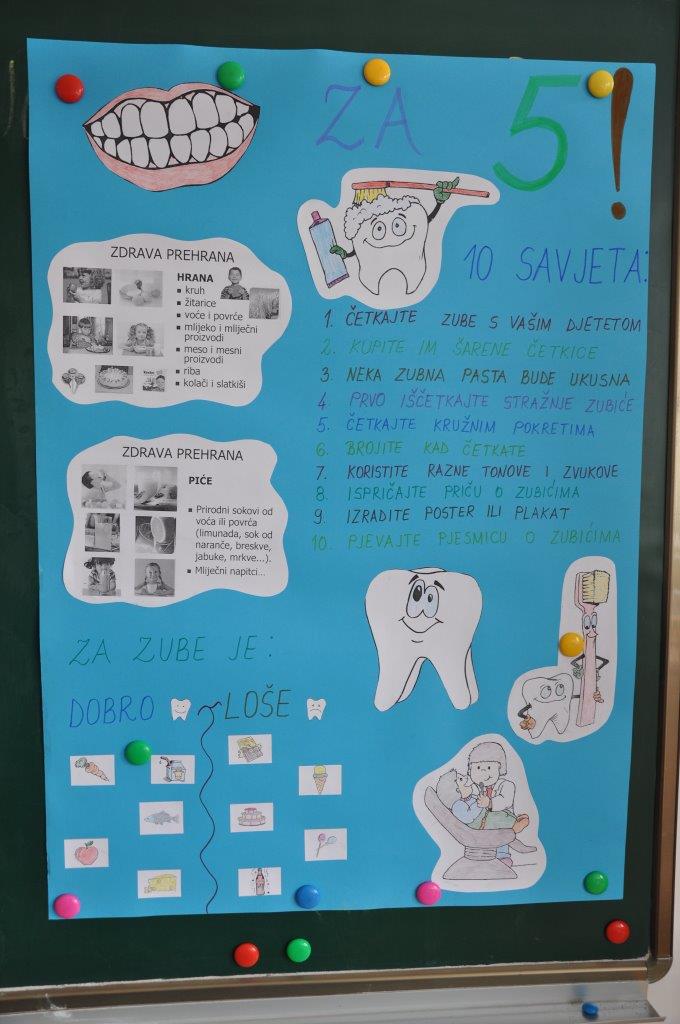 ZA 5!
10 SAVJETA:
1. ČETKAJTE ZUBE S VAŠIM DJETETOM
2. KUPITE IM ŠARENE ČETKICE
3. NEKA ZUBNA PASTA BUDE UKUSNA
4. PRVO IŠČETKAJTE STRAŽNJE ZUBIĆE
5. ČETKAJTE KRUŽNIM POKRETIMA
6. BROJITE KAD ČETKATE
7. KORISTITE RAZNE TONOVE I ZVUKOVE
8. ISPRIČAJTE PRIČU O ZUBIĆIMA
9. IZRADITE POSTER ILI PLAKAT
10. PJEVAJTE PJESMICU O ZUBIĆIMA
ZDRAVA PREHRANA
HRANA
▪ kruh
▪ žitarice
▪ voće i povrće
▪ mlijeko i mliječni
proizvodi
▪ meso i mesni
proizvodi
▪ riba
▪ kolači i slatkiši
ZDRAVA PREHRANA
PIĆE
▪ Prirodni sokovi od
voća ili povrća
(limunada, sok od
naranče, breskve,
jabuke, mrkve...).
▪ Mliječni napitci...
ZA ZUBE JE:
DOBRO LOŠE